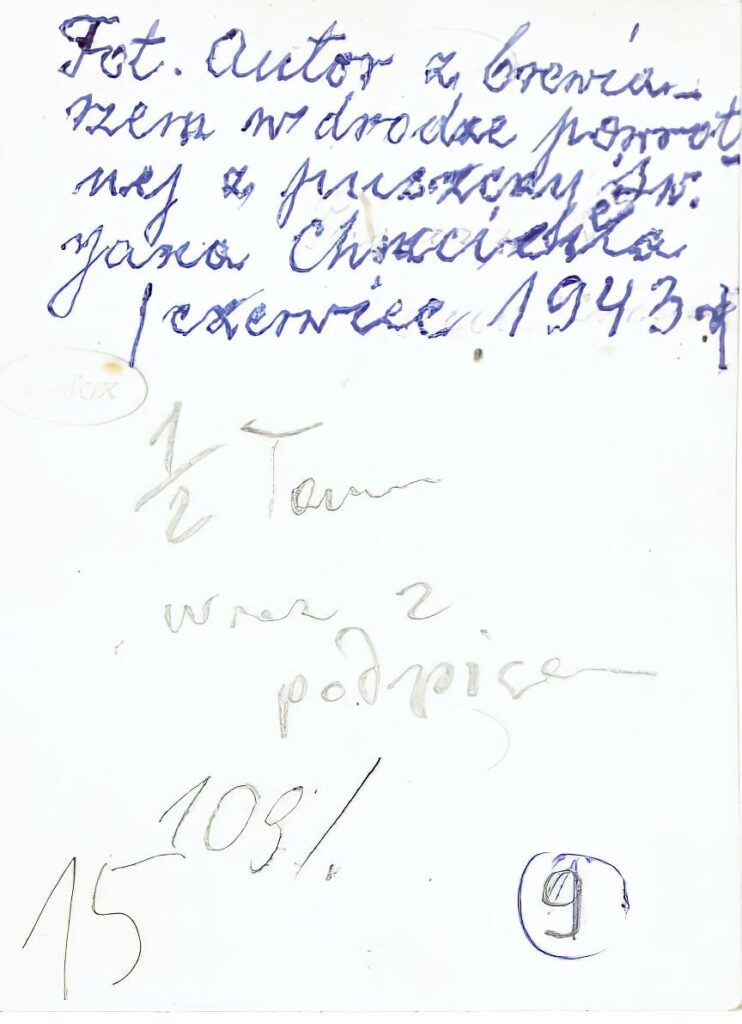 Fot. Autor z brewia-
rzem w drodze powrot-
nej z puszczy Św.
Jana Chrzciciela
/czerwiec 1943 r/
1/2 Tonu
wraz z
podpisem
109%
15
9